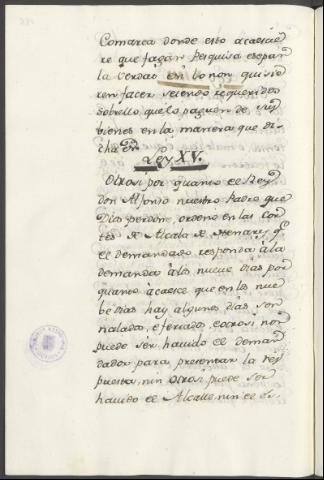 Comarca donde esto acaescie
re que fagan Pesquisa e sepan
la verdad en lo non quisie
ren facer seiendo requeridos
sobrello que lo paguen de sus
bienes en la manera que di
cha es
Ley XV.
Otrosi por quanto el Rey
don Alfonso nuestro Padre que
Dios perdone, ordeno en las Cor
tes de Alcala de Henares q.e
el demandado responda à la
demanda à los nueve dias por
quanto acaesce que en los nue
be dias hay algunos dias sen
nalados, e feriados, e otrosi non
puede sér havido el deman
dador para presentar la res
puesta, nin otrosi puede ser
havido el Alcalle, nin el es